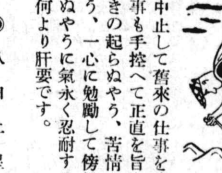 中止して舊來の仕事を
事も手控へて正直を旨
きの起らぬやう、苦情
う、一心に勉勵して傍
ぬやうに氣永く忍耐す
何より肝要です。